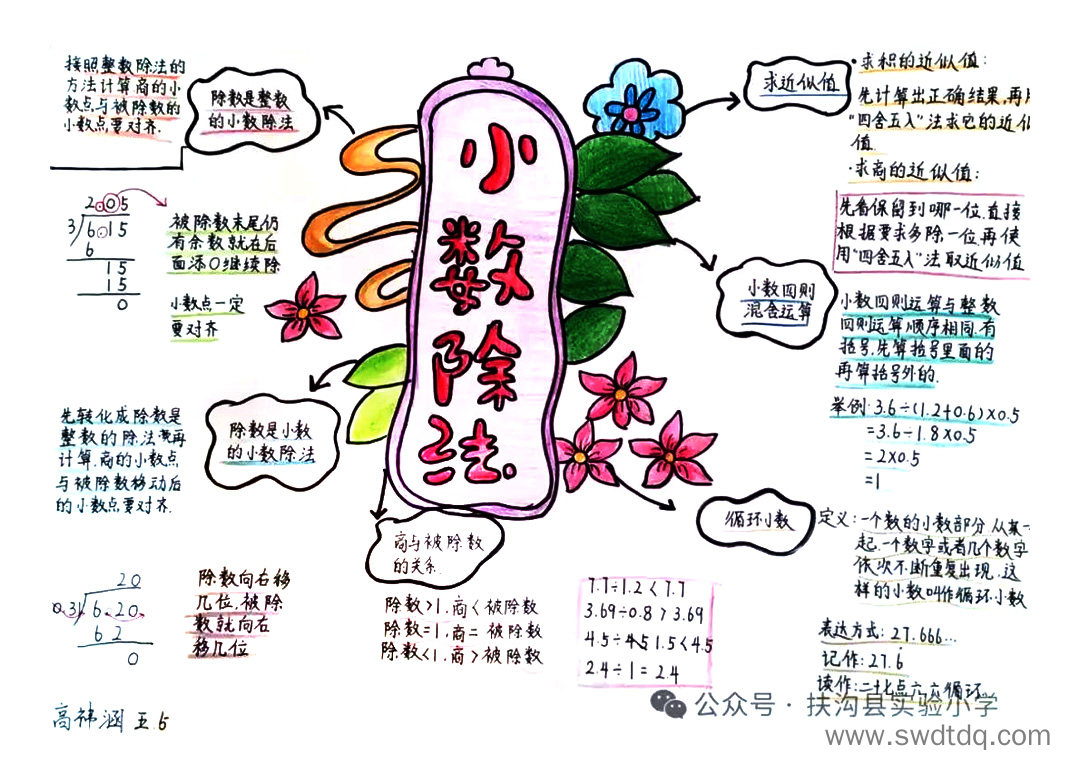 小
数
除
法
按照整数除法的
方法计算商的小
数点与被除数的
小数点要对齐.
除数是整数
的小数除法
2.05
3 6.15
6
15
15
0
被除数末尾仍
有余数就在后
面添0继续除
小数点一定
要对齐
先转化成除数是
整数的除法再
计算.商的小数点
与被除数移动后
的小数点要对齐.
除数是小数
的小数除法
20
0.31 6.20
62
0
除数向右移
几位,被除
数就向右
移几位
商与被除数
的关系
除数>1,商<被除数
除数=1,商=被除数
除数<1,商>被除数
7.7÷1.2<7.7
3.69÷0.8>3.69
4.5÷1.5<4.5
2.4÷1=2.4
求近似值
·求积的近似值:
先计算出正确结果,再
"四舍五入"法求它的近似
值.
·求商的近似值:
先看保留到哪一位.直接
根据要求多除一位再使
用"四舍五入"法取近似值
小数四则
混合运算
小数四则运算与整数
四则运算顺序相同.有
括号,先算括号里面的
再算括号外的.
举例:3.6÷(1.2+0.6)×0.5
=3.6÷1.8×0.5
=2×0.5
=1
循环小数
定义:一个数的小数部分.从某一
起.一个数字或者几个数字
依次不断重复出现.这
样的小数叫作循环小数
表达方式:27.666...
记作:27.6
读作:二十七点六,六循环
高祎涵 五.5
公众号·扶沟县实验小学
www.swdtdq.com